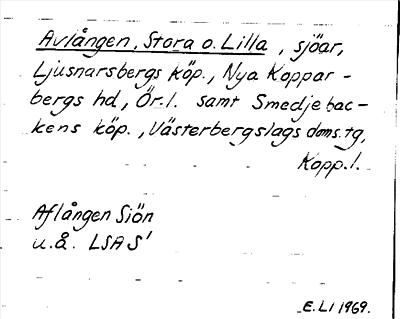 Avlången, Stora o. Lilla, sjöar,
Ljusnarsbergs köp., Nya Koppar-
bergs hd, Ör. l. samt Smedjebac-
kens köp., Västerbergslags doms.tg,
Kopp. l.
Aflången Siön
u.å. LSA S'
E. LI 1969.